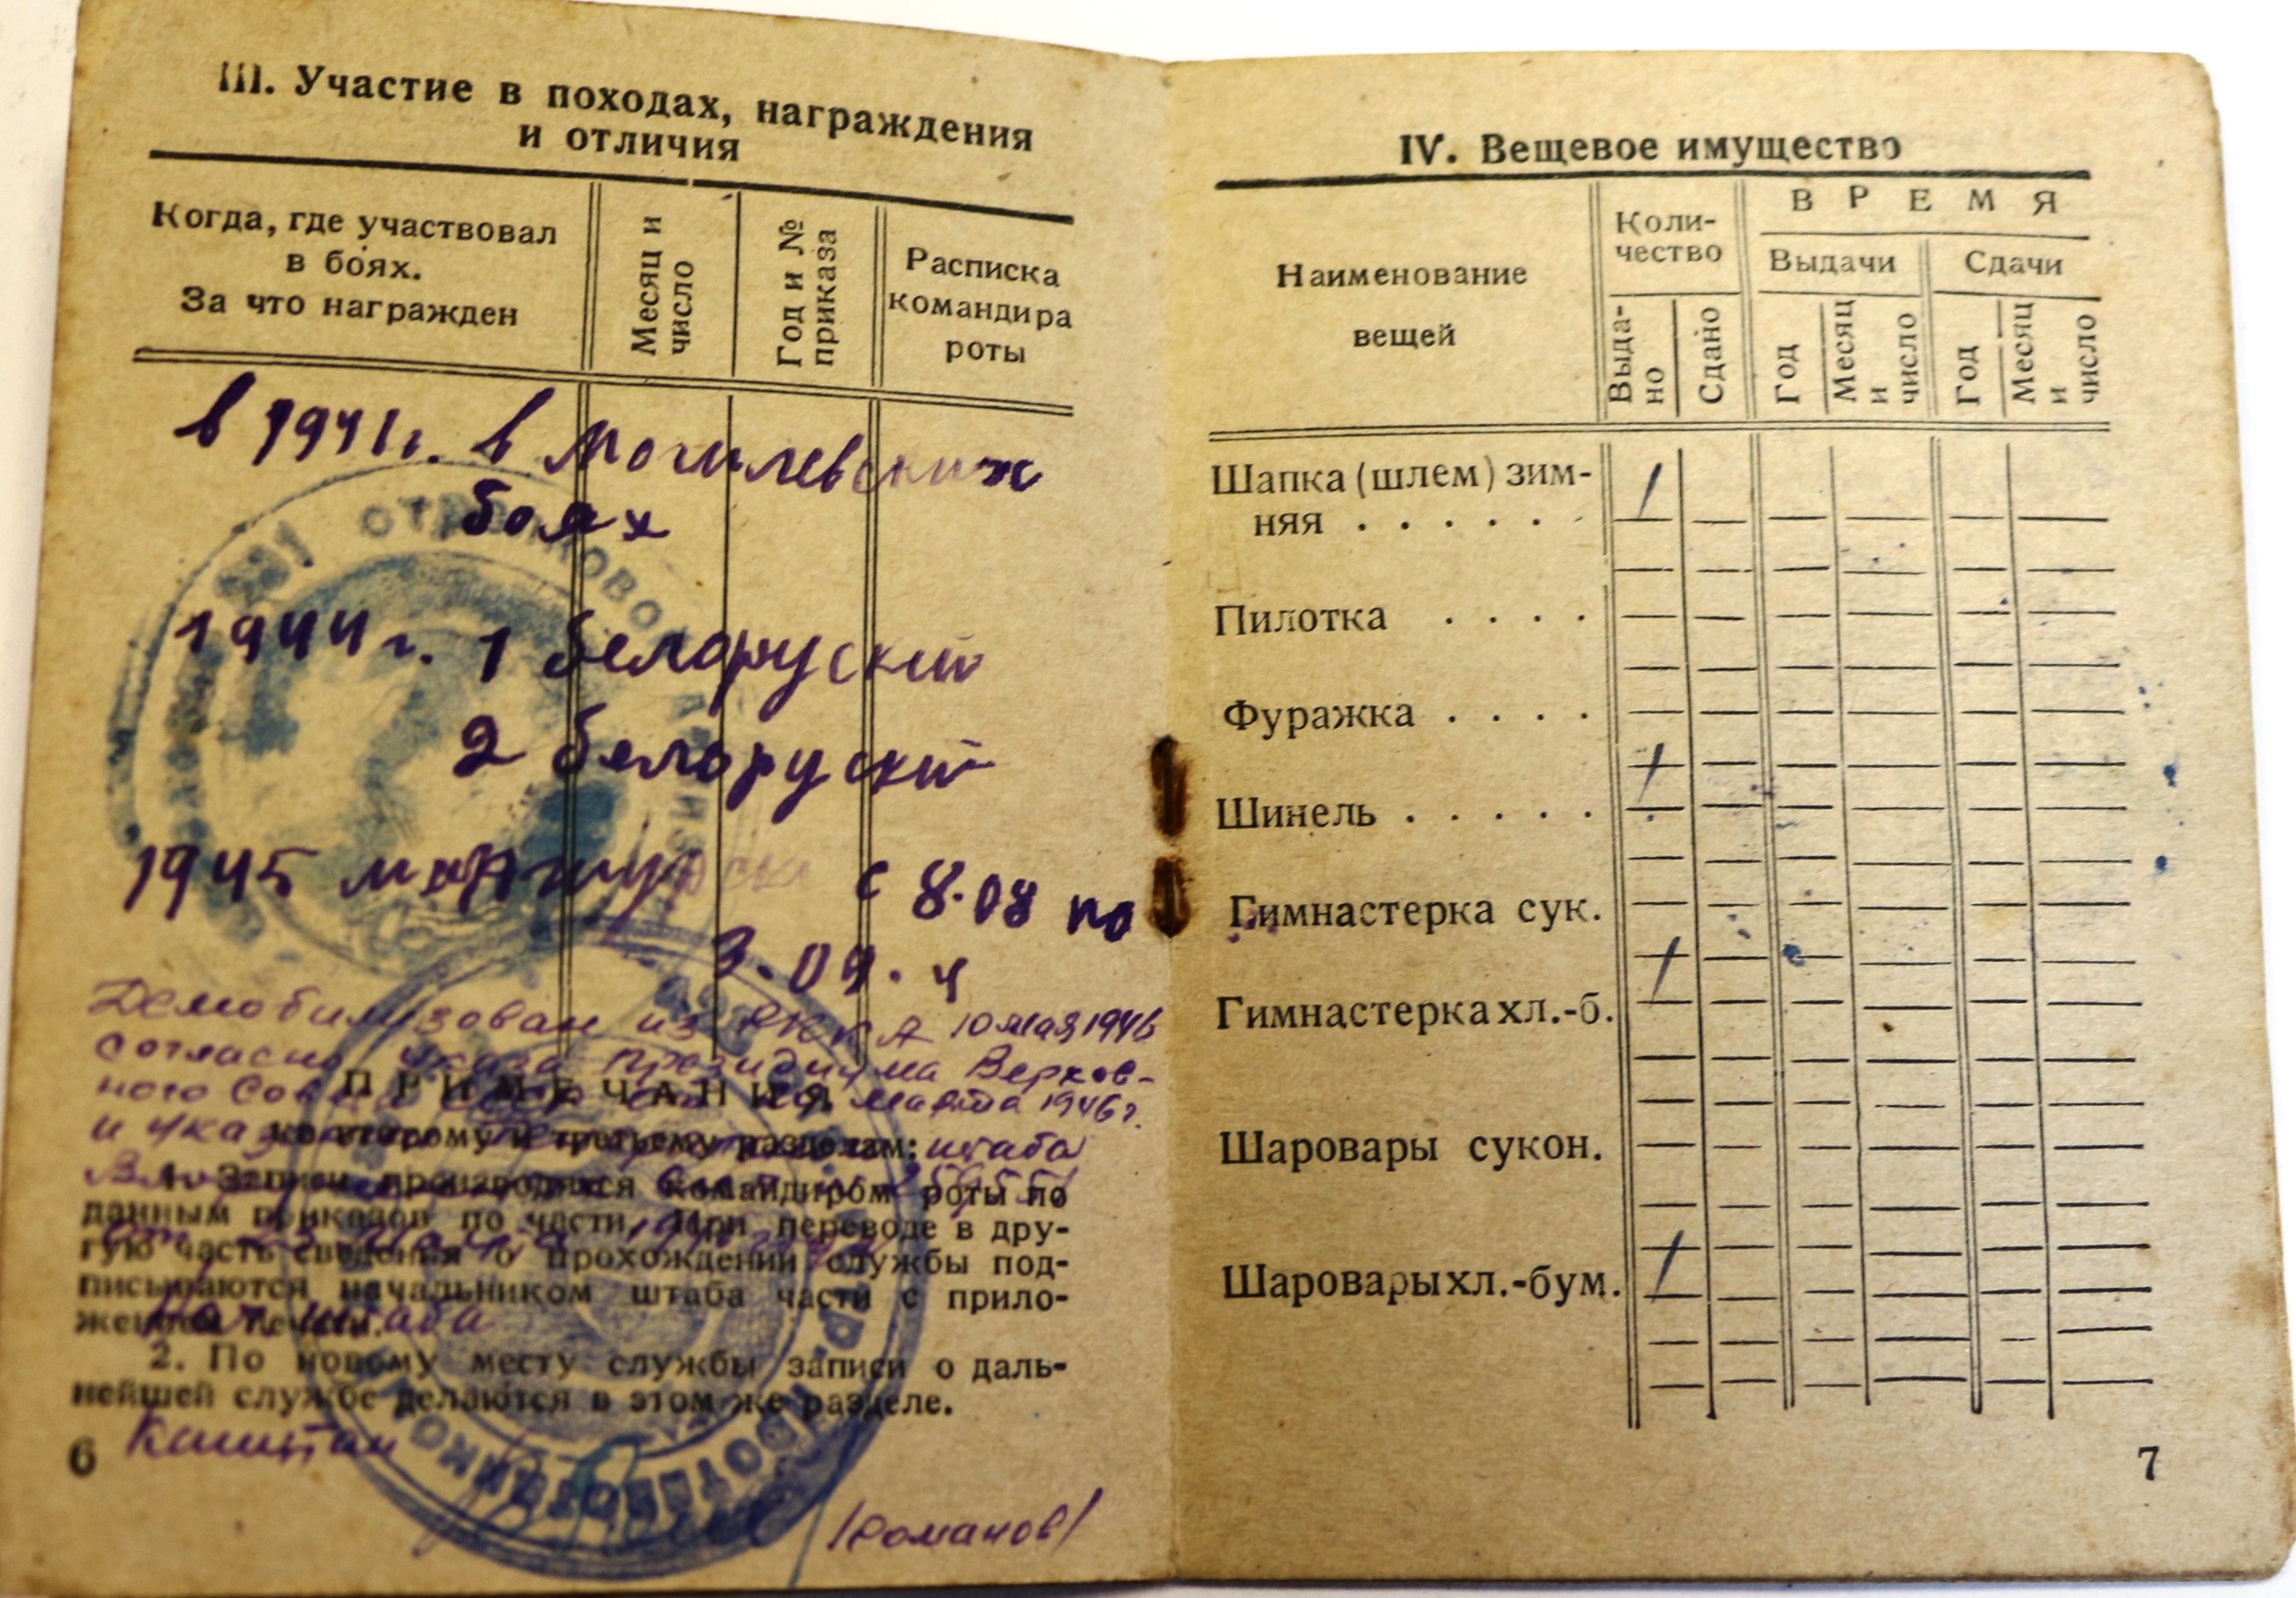 III. Участие в походах, награждения
и отличия
Когда, где участвовал
в боях.
За что награжден
Месяц и
число
Год и №
приказа
Расписка
командира
роты
в 1941г. в Могилевских
боях
1944 г. 1 белоруский
2 белоруский
1945 с 8.08 по
3.09.
Демобилизован из РККА 10 мая 1946
согласно указа Президиума Верхов-
ного марта 1946 г.
и штаба
ПРИМЕЧАНИЯ
ко второму и третьему разделам:
1. Записи производятся командиром роты по
данным приказов по части. При переводе в дру-
гую часть сведения о прохождении службы под-
писываются начальником штаба части с прило-
жением печати.
Нач штаба
2. По новому месту службы записи о даль-
нейшей службе делаются в этом же разделе.
Капитан
/Романов/
6
IV. Вещевое имущество
Наименование
вещей
Коли-
чество
ВРЕМЯ
Выдачи
Сдачи
Выда-
но
Сдано
Год
Месяц
и
число
Год
Месяц
и
число
Шапка (шлем) зим-
няя . . . . . . /
Пилотка . . . .
Фуражка . . . .
Шинель . . . . . /
Гимнастерка сук.
Гимнастерка хл.-б. /
Шаровары сукон.
Шаровары хл.-бум. /
7